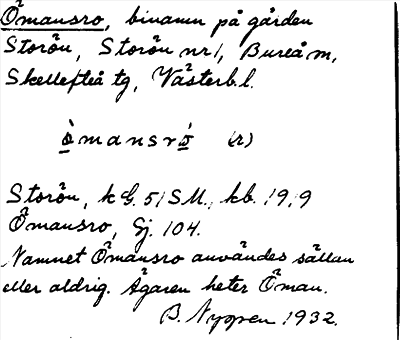 Ömansro, binamn på gården
Storön, Storön nr 1, Bureå sn,
Skellefteå tg, Västerb. l.
ò̱mansró̱ (r)
Storön, k G. 51 SM., kb. 19,9
Ömansro, Gj. 104.
Namnet Ömansro användes sällan
eller aldrig. Ägaren heter Öman.
B. Nygren 1932.